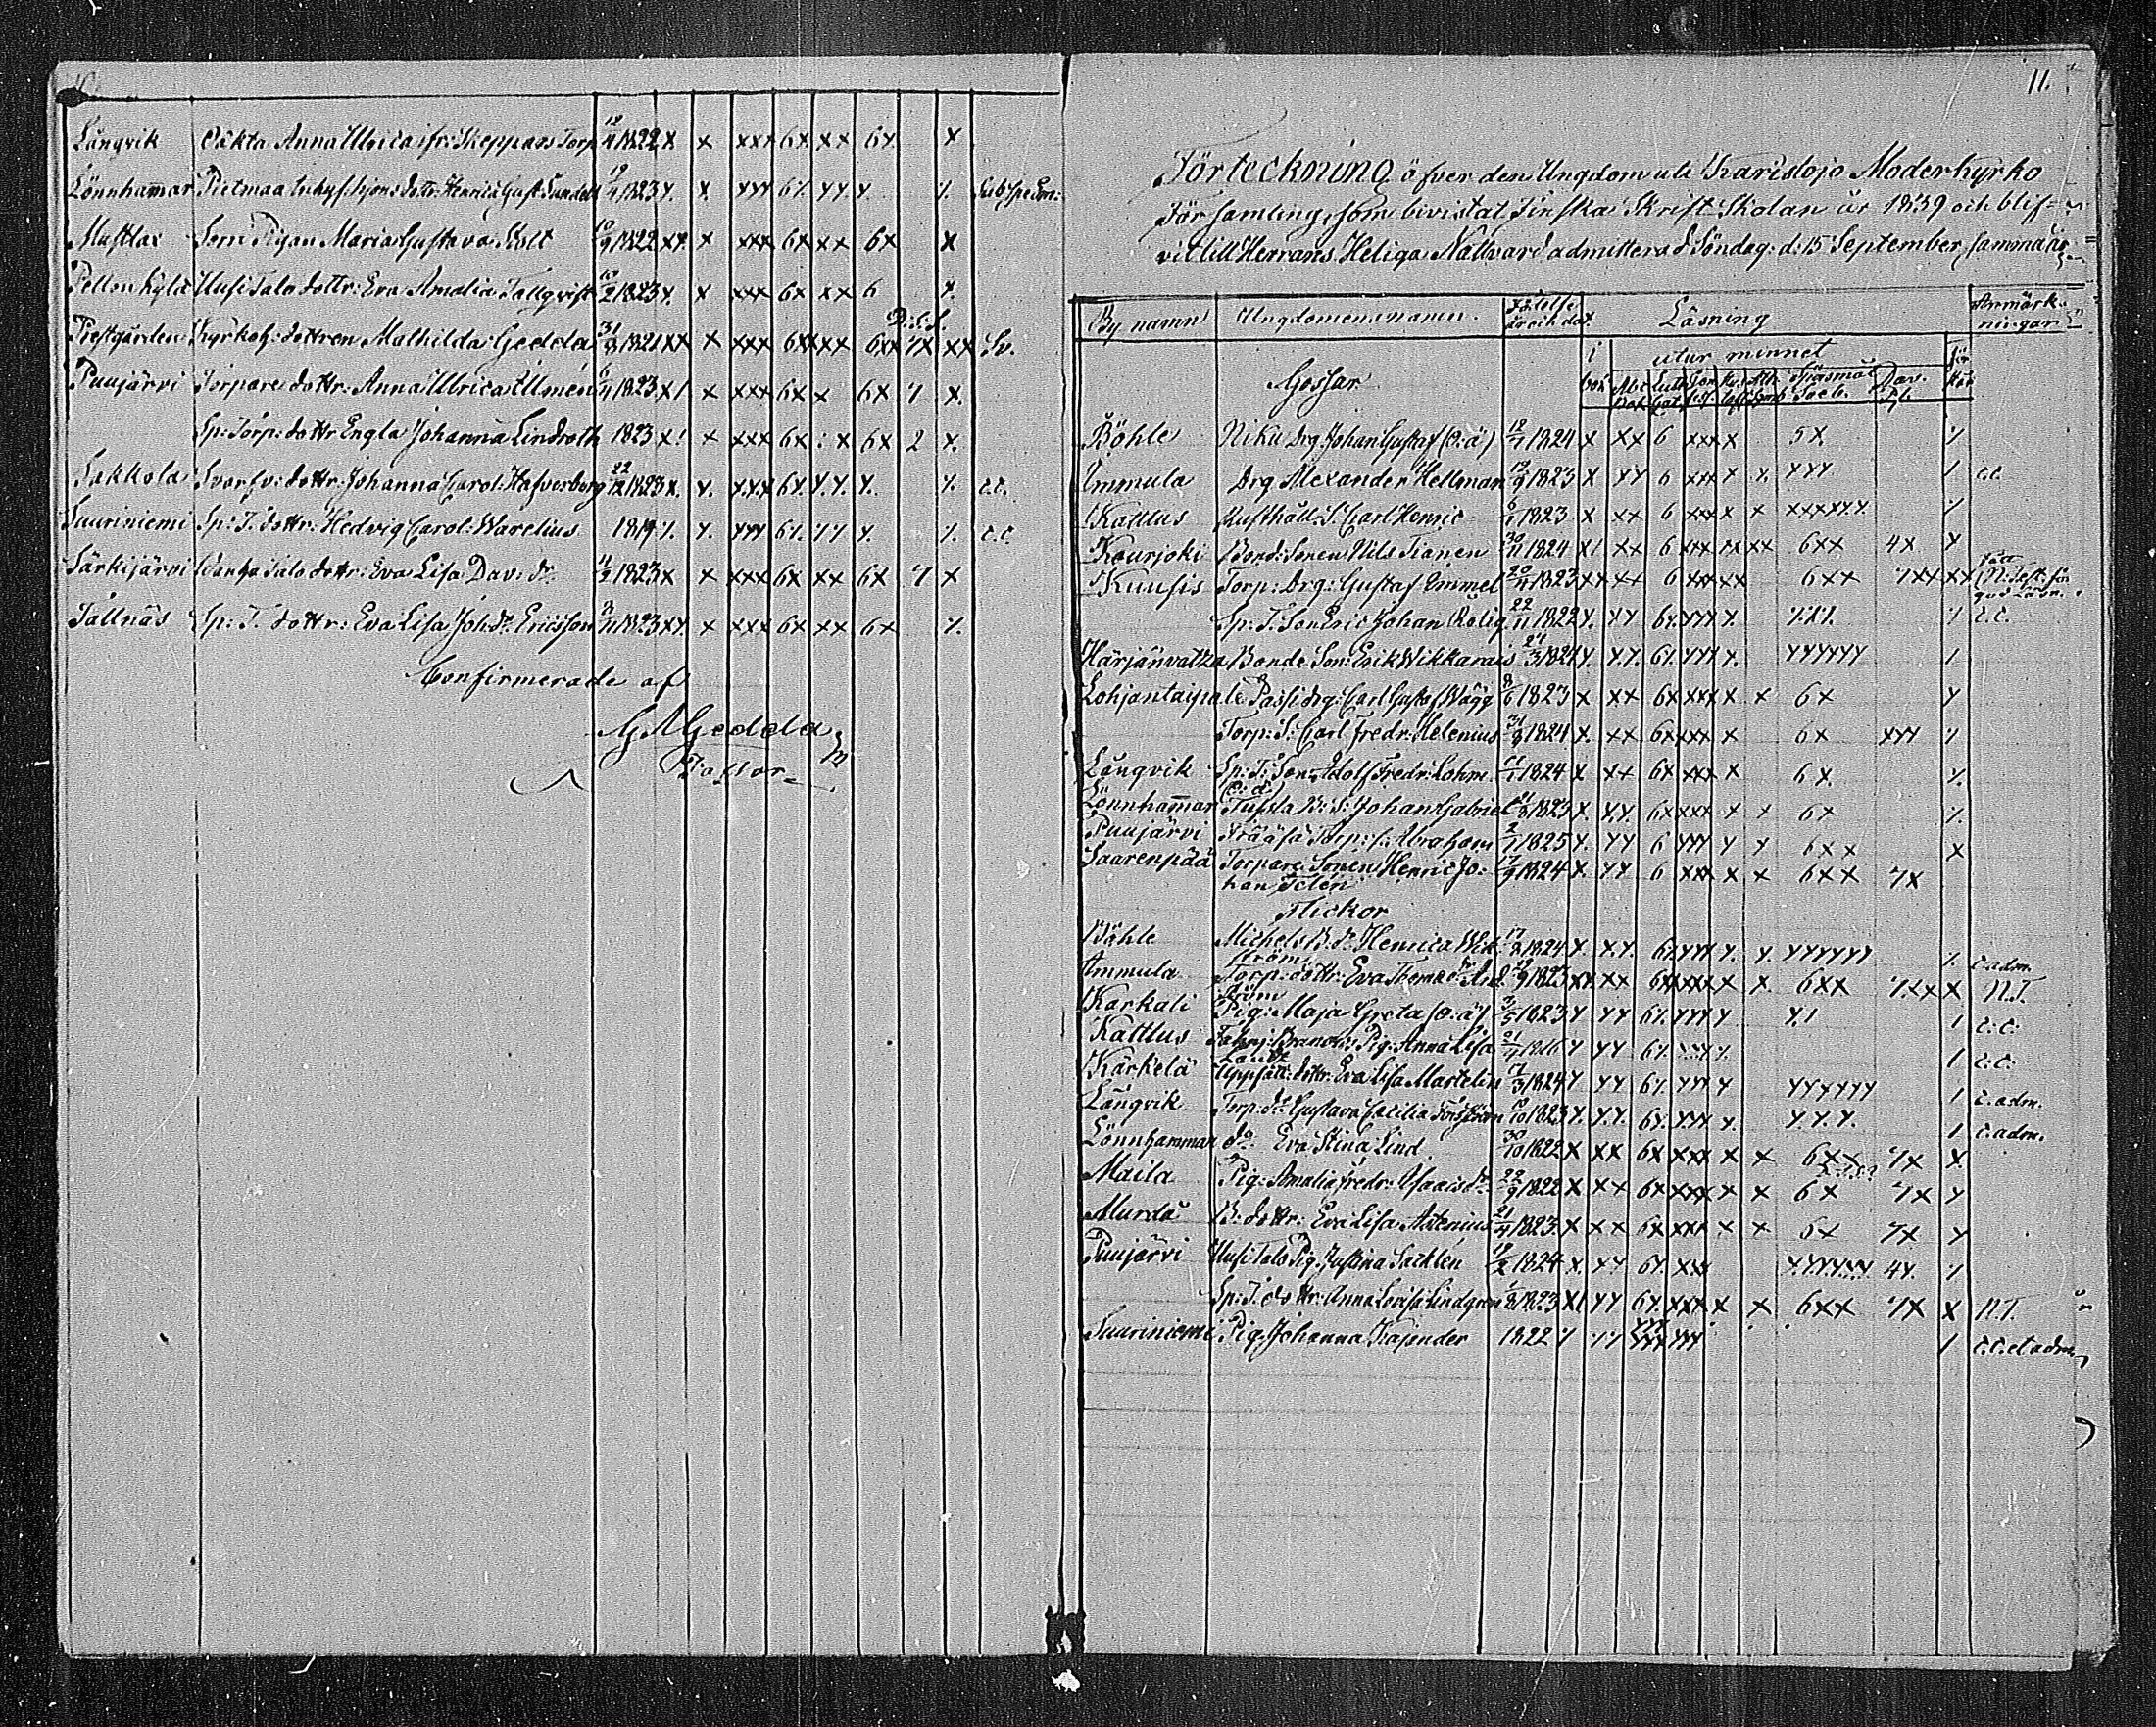 Långvik Oäkta Anna Ulrica ifr: Skeppars Torp 12/4 1822 x x xxx 6x xx 6x x
Lönnhamar Pietmaa dottr: Henrica Gust: Sundell 19/4 1823 x. x. xxx 6x. xx. x. x.
Mustlax Pigan Maria Gustava Stolt 10/9 1822 xx. x xxx 6x xx 6x x
Uusi Talo dottr: Eva Amalia Tallqvist 10/2 1823 x. x xxx 6x xx 6 x.
D: S: S.
Prestgården Kyrkoh: dottren Mathilda Gedda 31/8 1821 xx x xxx 6xx xx 6xx 7x xx Sv.
Puujärvi Torpare dottr: Anna Ulrica Ulmén 6/4 1823 x/ x xxx 6x x 6x 7 x.
Sp: Torp: dottr Engla Johanna Lindroth 1823 x! x xxx 6x : x 6x 2 x.
Sakkola dottr: Johanna Carol: Hafverberg 22/12 1823 x. x. xxx 6x. x. x. x. x. c.c.
Suuriniemi Sp: T. dottr: Hedvig Carol: Warelius 1819 x. x. xxx 6x. xx x. x. c.c
Särkijärvi Wanha Talo dottr: Eva Lisa Dav: dr. 11/2 1823 x x xxx 6x xx 6x 7 x
Tallnäs Sp: T. dottr: Eva Lisa Joh:dr. Ericsson 3/11 1823 xx. x xxx 6x xx 6x x.
Confirmerade af
G A Gedda
Pastor
11.
Förteckning öfver den Ungdom uti Karislojo Moderkyrko
Församling, som bivistat Finska Skrift Skolan år 1839 och blif-
vit till Herrans Heliga Nattvard admitterad Söndag: d: 15 September samma år
By namn Ungdomens namn. Födelse år och dat. Läsning Anmärkningar
i bok utur minnet
Gossar
Böhle Niku Drg. Johan Gustaf (o:ä) 12/7 1824 x xx 6 xxx x 5x x
Immula Drg Alexander Hellman 12/9 1823 x xx 6 xxx x x. xxx / c.c.
Kattlus Rusthåll: S. Carl Henric 6/1 1823 x xx 6 xxx x x xxxxxx x
Kourjoki Bond: Sonen Nils Tianen 30/11 1824 x/ xx 6 xxx xx xx 6xx 4x x
Kuusis Torp: Drg: Gustaf Emmel 20/11 1823 xx xx 6 xxx xx 6xx 7xx xx fått N: Test: för god Läsn.
Sp: T. Son Eric Johan Rolig 22/11 1822 x. xx 6x. xxx x. x.x.x. / c.c.
Härjänvatza Bonde Son: Erik Wikkarais 27/3 1824 x. x.x. 6x. xxx x. xxxxxx /
Lohjantaipale Passi Drg: Carl Gustaf Wägg 8/6 1823 x xx 6x xxx x x 6x x
Torp: S: Carl Fredr: Helenius 31/8 1824 x. xx 6x xxx x 6x xxx x
Långvik Sp: T: Son: Adolf Fredr: Lohm 11/1 1824 x xx 6x xxx x 6x. x.
Lönnhammar (o: ä) B: S: Johan Gabriel 21/8 1823 x. x.x. 6x xxx x x 6x x.
Puujärvi Torp: s: Abraham 2/7 1825 x. xx 6 xxx x x 6xx x
Saarenpää Torpare Sonen Henric Jo- 17/9 1824 x. xx 6 xxx x x 6xx 7x
han Telén
Flickor
Böhle Michels B. dr. Henrica Wik- 17/2 1824 x. x.x. 6x. xxx x. x. xxxxxx x. c. adm.
ström
Immula Torp: dottr: Eva Thoma dr. 1823 xx xx 6x xxx x x. 6xx 7xx x N.T.
Karkali Pig: Maja Greta (o:ä) 1823 x xx 6x. xxx x x.! / c: c:
Kattlus Pig: Anna Lisa 21/7 1816 x xx 6x. xxx x. / c: c:
Kärkelä dottr: Eva Lisa Martelin 17/3 1824 x xx 6x. xxx x xxxxxx / c. adm.
Långvik Torp: dr. Gustava Cecilia Forsström 10/10 1823 x. x.x. 6x. xxx x. x.x.x. / c: adm.
Lönnhammar do. Eva Stina Lind 30/10 1822 x xx 6x xxx x x 6xx 7x x
Maila Pig: Amalia Fredr: Isaacs dr. 22/9 1822 x xx 6x xxx x x 6x 7x x
Murdå B: dottr: Eva Lisa Astenius 21/4 1823 x xx 6x xxx x x 6x 7x x
Puujärvi Uusi Talo Pig. Justina Sachlén 19/2 1824 x. xx 6x. xxx xxxxxx 4x. x.
Sp: T. dottr: Anna Lovisa Lindgren 1/8 1823 x/ xx 6x. xxx x x 6xx 7x x N.T.
Suuriniemi Pig. Johanna Kajander 1822 / xx xxx xxx / c. c. et adm.